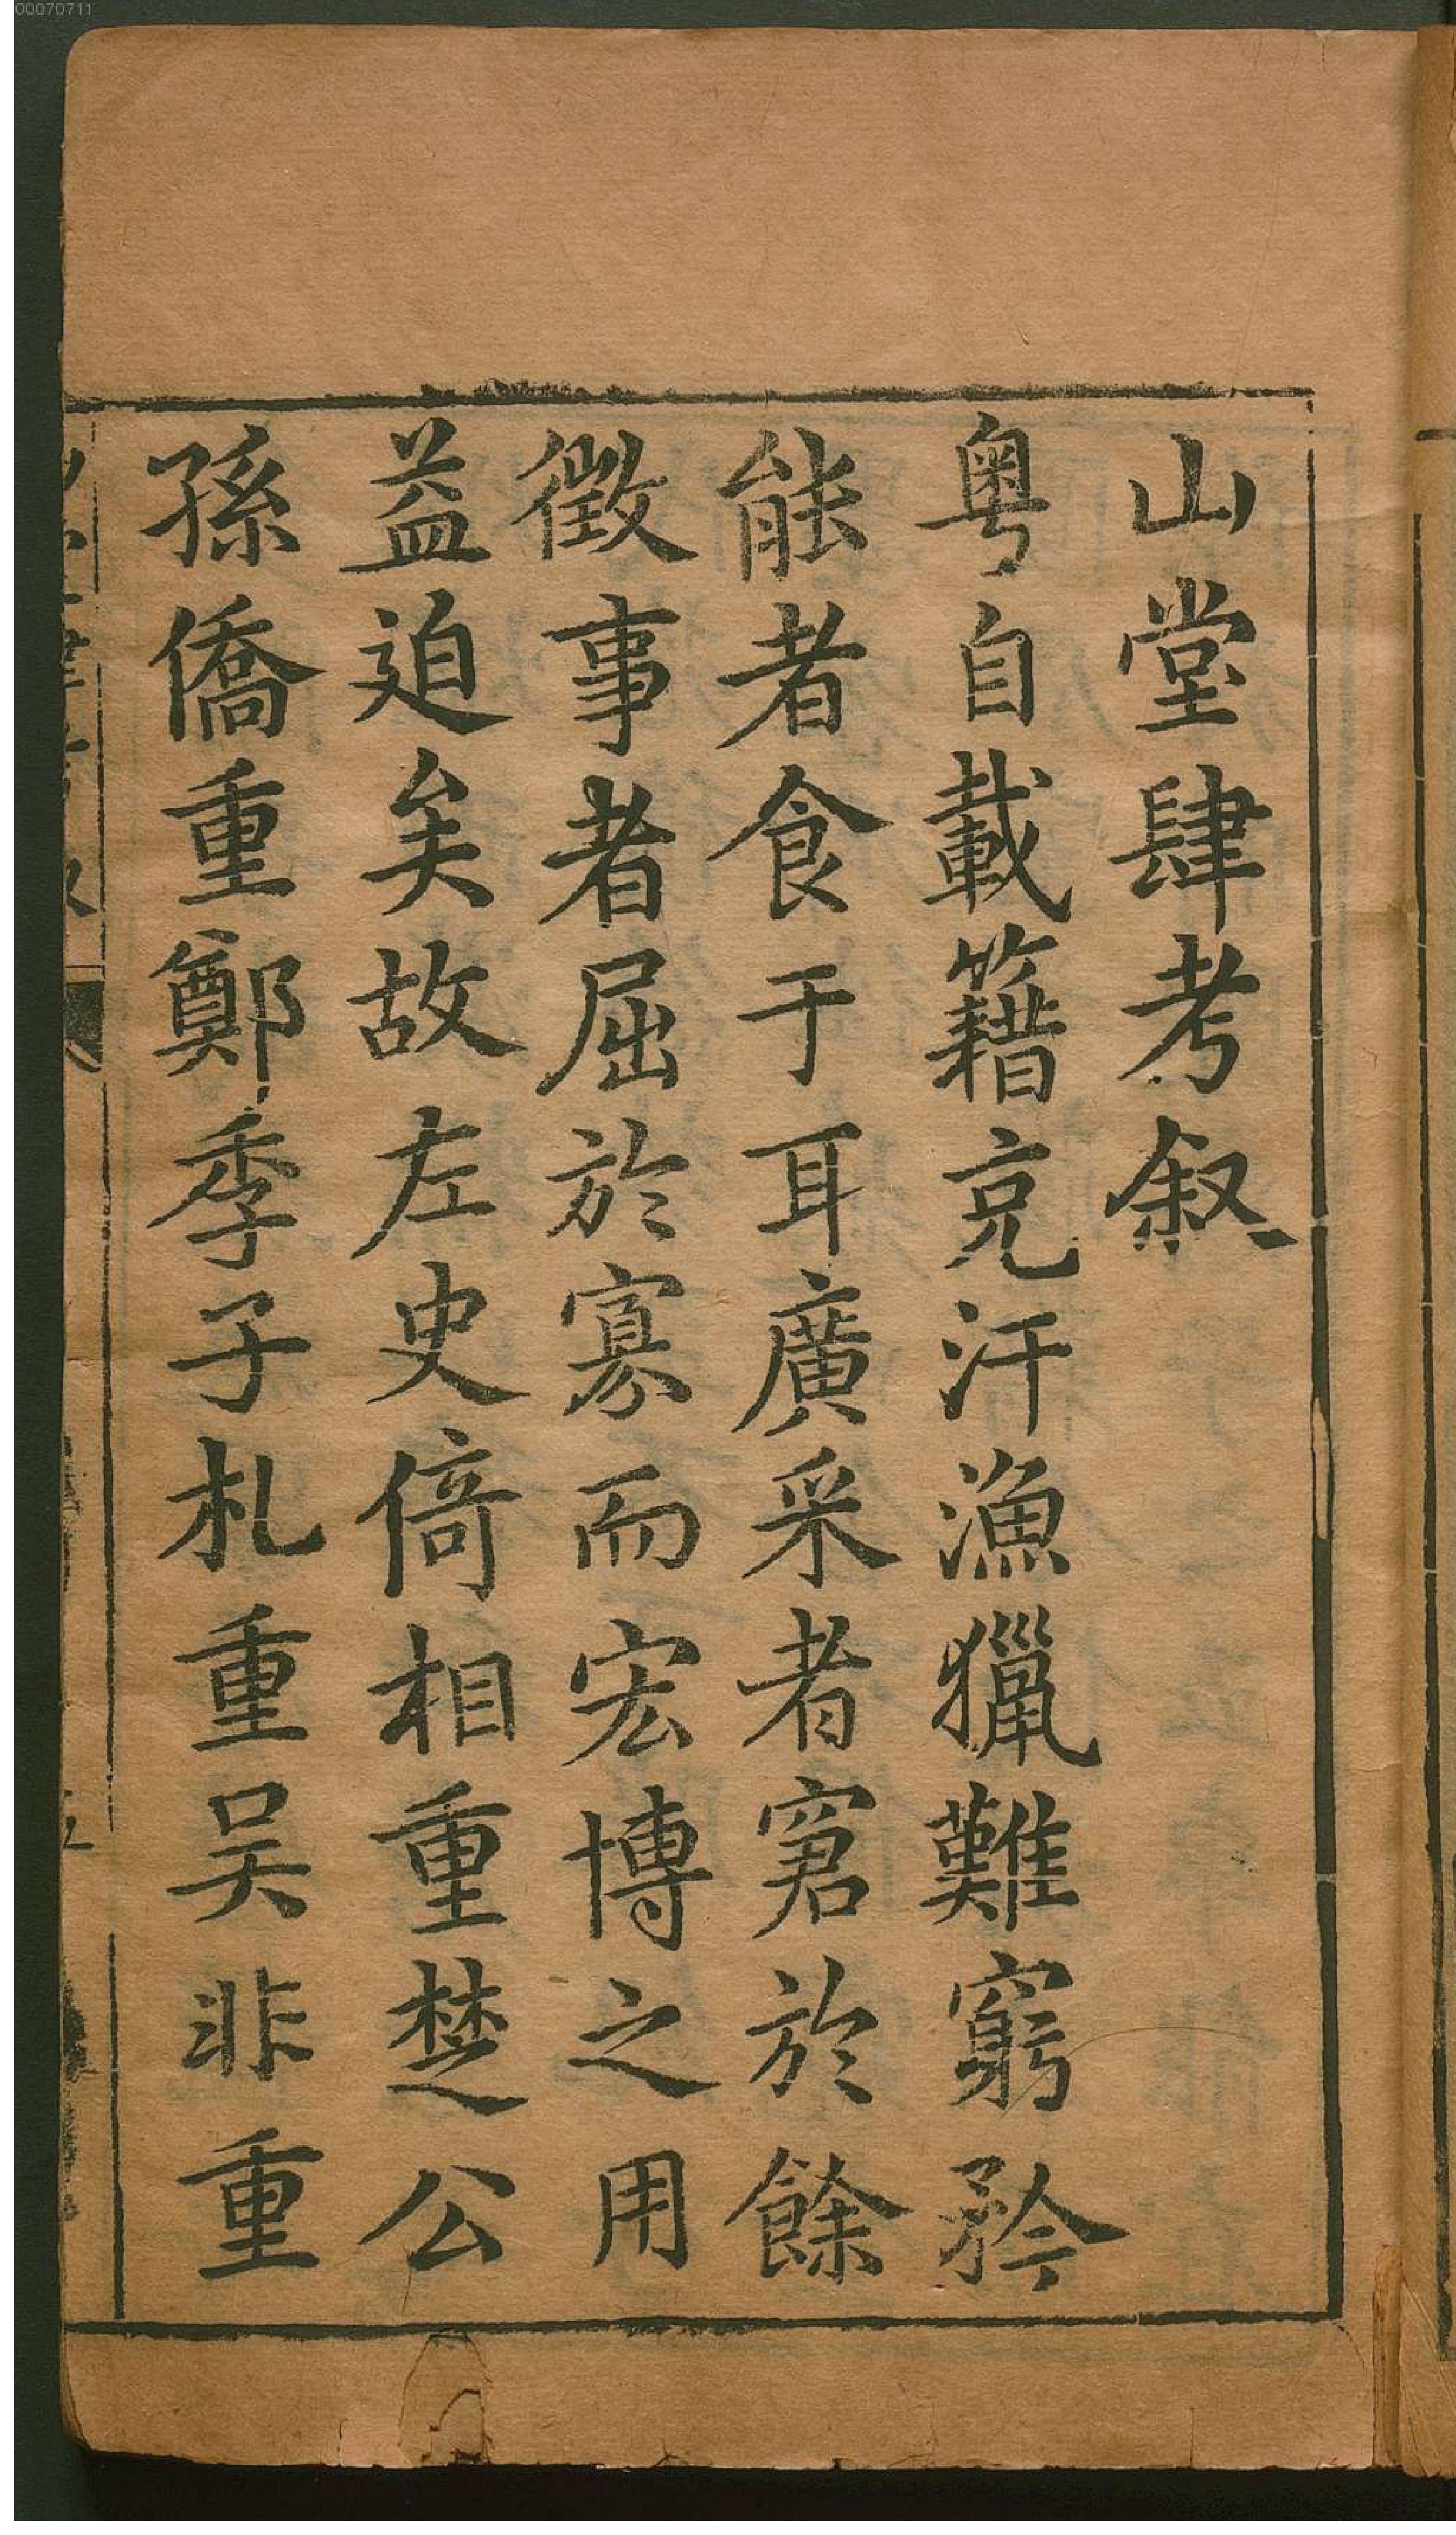 00070711
山堂肆考叙
粤自載籍充汗漁獵難窮矜
能者食于耳廣采者窘於餘
徵事者屈於寡而宏博之用
益迫矣故左史倚相重楚公
孫僑重鄭季子札重吴非重